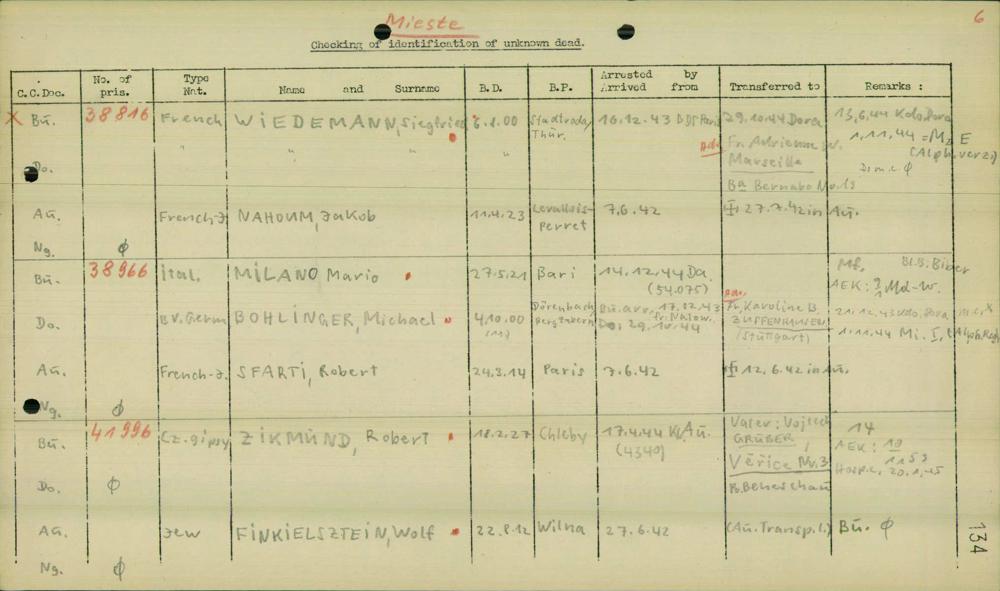 Mieste
6
Checking of identification of unknown dead.
C.C.Doc. No. of pris. Type Nat. Name and Surname B.D. B.P. Arrested by Arrived from Transferred to Remarks :
X Bu. 38816 French WIEDEMANN, Siegfried 6.1.00 Stadtroda, Thür. 16.12.43 BDS Paris 29.10.44 Dora 13.6.44 Kdo. Dora
" " " Adr. Fr. Adrienne W. 1.11.44 = M I E
Do. Marseille (Alph.verz.)
Bd Bernabo No. 19 D.m.c. ϕ
Au. French-J NAHOUM, Jakob 11.4.23 Levallois-Perret 7.6.42 ‡ 27.7.42 in Au.
Ng. ϕ
Bu. 38966 Ital. MILANO Mario 27.5.21 Bari 14.12.44 Da. (54.075)
AEK:
Do. BV. Germ BOHLINGER, Michael 4.10.00 Dörenbach Bergzabern Bu. arr. 17.12.43 fr. Natzw. Do. 29.10.44 Adr. Fr. Karoline B. ZUFFENHAUSEN (Stuttgart) 21.12.43 Kdo. Dora
1.11.44 Mi. I,
Au. French-J. SFARTI, Robert 24.3.14 Paris 7.6.42 ‡ 12.6.42 in Au.
Ng. ϕ
Bu. 41996 Cz. gipsy ZIKMUND, Robert 18.2.27 Chleby 17.4.44 KL Au. (4340) Vater: Vojtech GRUBER, Věřice Nr. 3 14
AEK: 19
1153
Hosp. 20.1.45
Do. ϕ P. Beneschau
Au. Jew FINKIELSZTEIN, Wolf 22.8.12 Wilna 27.6.42 (Au. Transp. l.) Bu. ϕ
Ng. ϕ
134